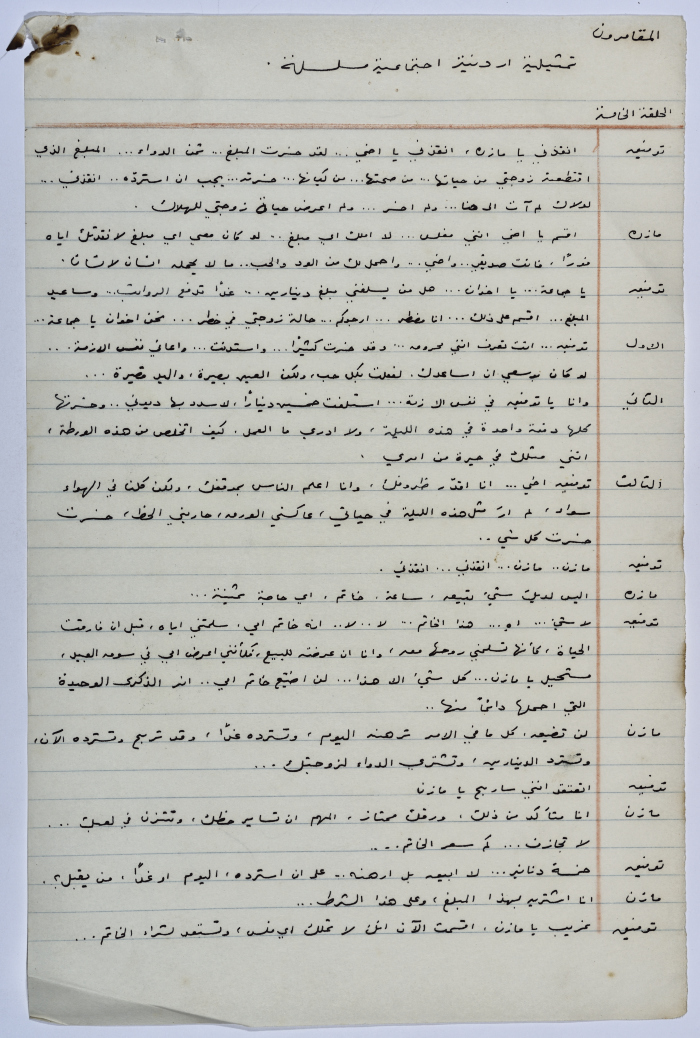 المقامرون
تمثيلية اردنية اجتماعية مسلسلة .
الحلقة الخامسة
توفيق انقذني يا مازن، انقذني يا اخي ... لقد خسرت المبلغ .. ثمن الدواء ... المبلغ الذي
اقتطعته زوجتي من حياتها ... من صحتها ... من كيانها ... خسرته ... يجب ان استرده .. انقذني ...
لولاك لم آت الى هنا ... ولم اخسر ... ولم اعرض حياة زوجتي للهلاك .
مازن اقسم يا اخي انني مفلس ... لا املك اي مبلغ .. لو كان معي اي مبلغ لانقدتك اياه
فورًا، فانت صديقي .. واخي ... واحمل لك من الود والحب .. ما لا يحمله انسان لانسان .
توفيق يا جماعة .. يا اخوان ... هل من يسلفني مبلغ دينارين ... غدًا تدفع الرواتب ... وساعيد
المبلغ ... اقسم على ذلك ... انا مضطر ... ارجوكم ... حالة زوجتي في خطر ... نحن اخوان يا جماعة ...
الاول توفيق ... انت تعرف انني محروق ... وقد خسرت كثيرًا ... واستدنت ... واعاني نفس الازمة ...
لو كان بوسعي ان اساعدك. لفعلت بكل حب، ولكن العين بصيرة، واليد قصيرة ...
الثاني وانا يا توفيق في نفس الازمة ... استلفت خمسين دينارًا، لاسدد بها ديوني .. وخسرتها
كلها دفعة واحدة في هذه الليلة، ولا ادري ما العمل. كيف اتخلص من هذه الورطة،
انني مثلك في حيرة من امري .
الثالث توفيق اخي ... انا اقدّر ظروفك، وانا اعلم الناس بموقفك، ولكن كلنا في الهواء
سواء، لم ارَ مثل هذه الليلة في حياتي، عاكسني الورق، حاربني الحظ، خسرت
خسرت كل شي ..
توفيق مازن .. مازن .. انقذني ... انقذني .
مازن اليس لديك شيء تبيعه، ساعة، خاتم، اي حاجة ثمينة ...
توفيق لا شيء ... اه ... هذا الخاتم ... لا .. لا .. انه خاتم امي، سلمتني اياه، قبل ان فارقت
الحياة، كأنها تسلمني روحها معه، وانا ان عرضته للبيع، فكأنني اعرض امي في سوق العبيد،
مستحيل يا مازن ... كل شيء الا هذا ... لن اضيّع خاتم امي .. انه الذكرى الوحيدة
التي احملها دائمًا منها ..
مازن لن تضيعه، كل ما في الامر ترهنه اليوم، وتسترده غدًا، وقد تربح وتسترده الآن،
وتسترد الدينارين، وتشتري الدواء لزوجتك ...
توفيق اتعتقد انني ساربح يا مازن
مازن انا متأكد من ذلك، ورقك ممتاز، المهم ان تساير حظك، وتتزن في لعبك ...
لا تجازف ... كم سعر الخاتم ...
توفيق خمسة دنانير ... لا ابيعه بل ارهنه .. على ان استرده، اليوم او غدًا، من يقبل؟ .
مازن انا اشتريه بهذا المبلغ، وعلى هذا الشرط ...
توفيق غريب يا مازن، اقسمت الآن انك لا تملك اي فلس، وتستعد لشراء الخاتم ...